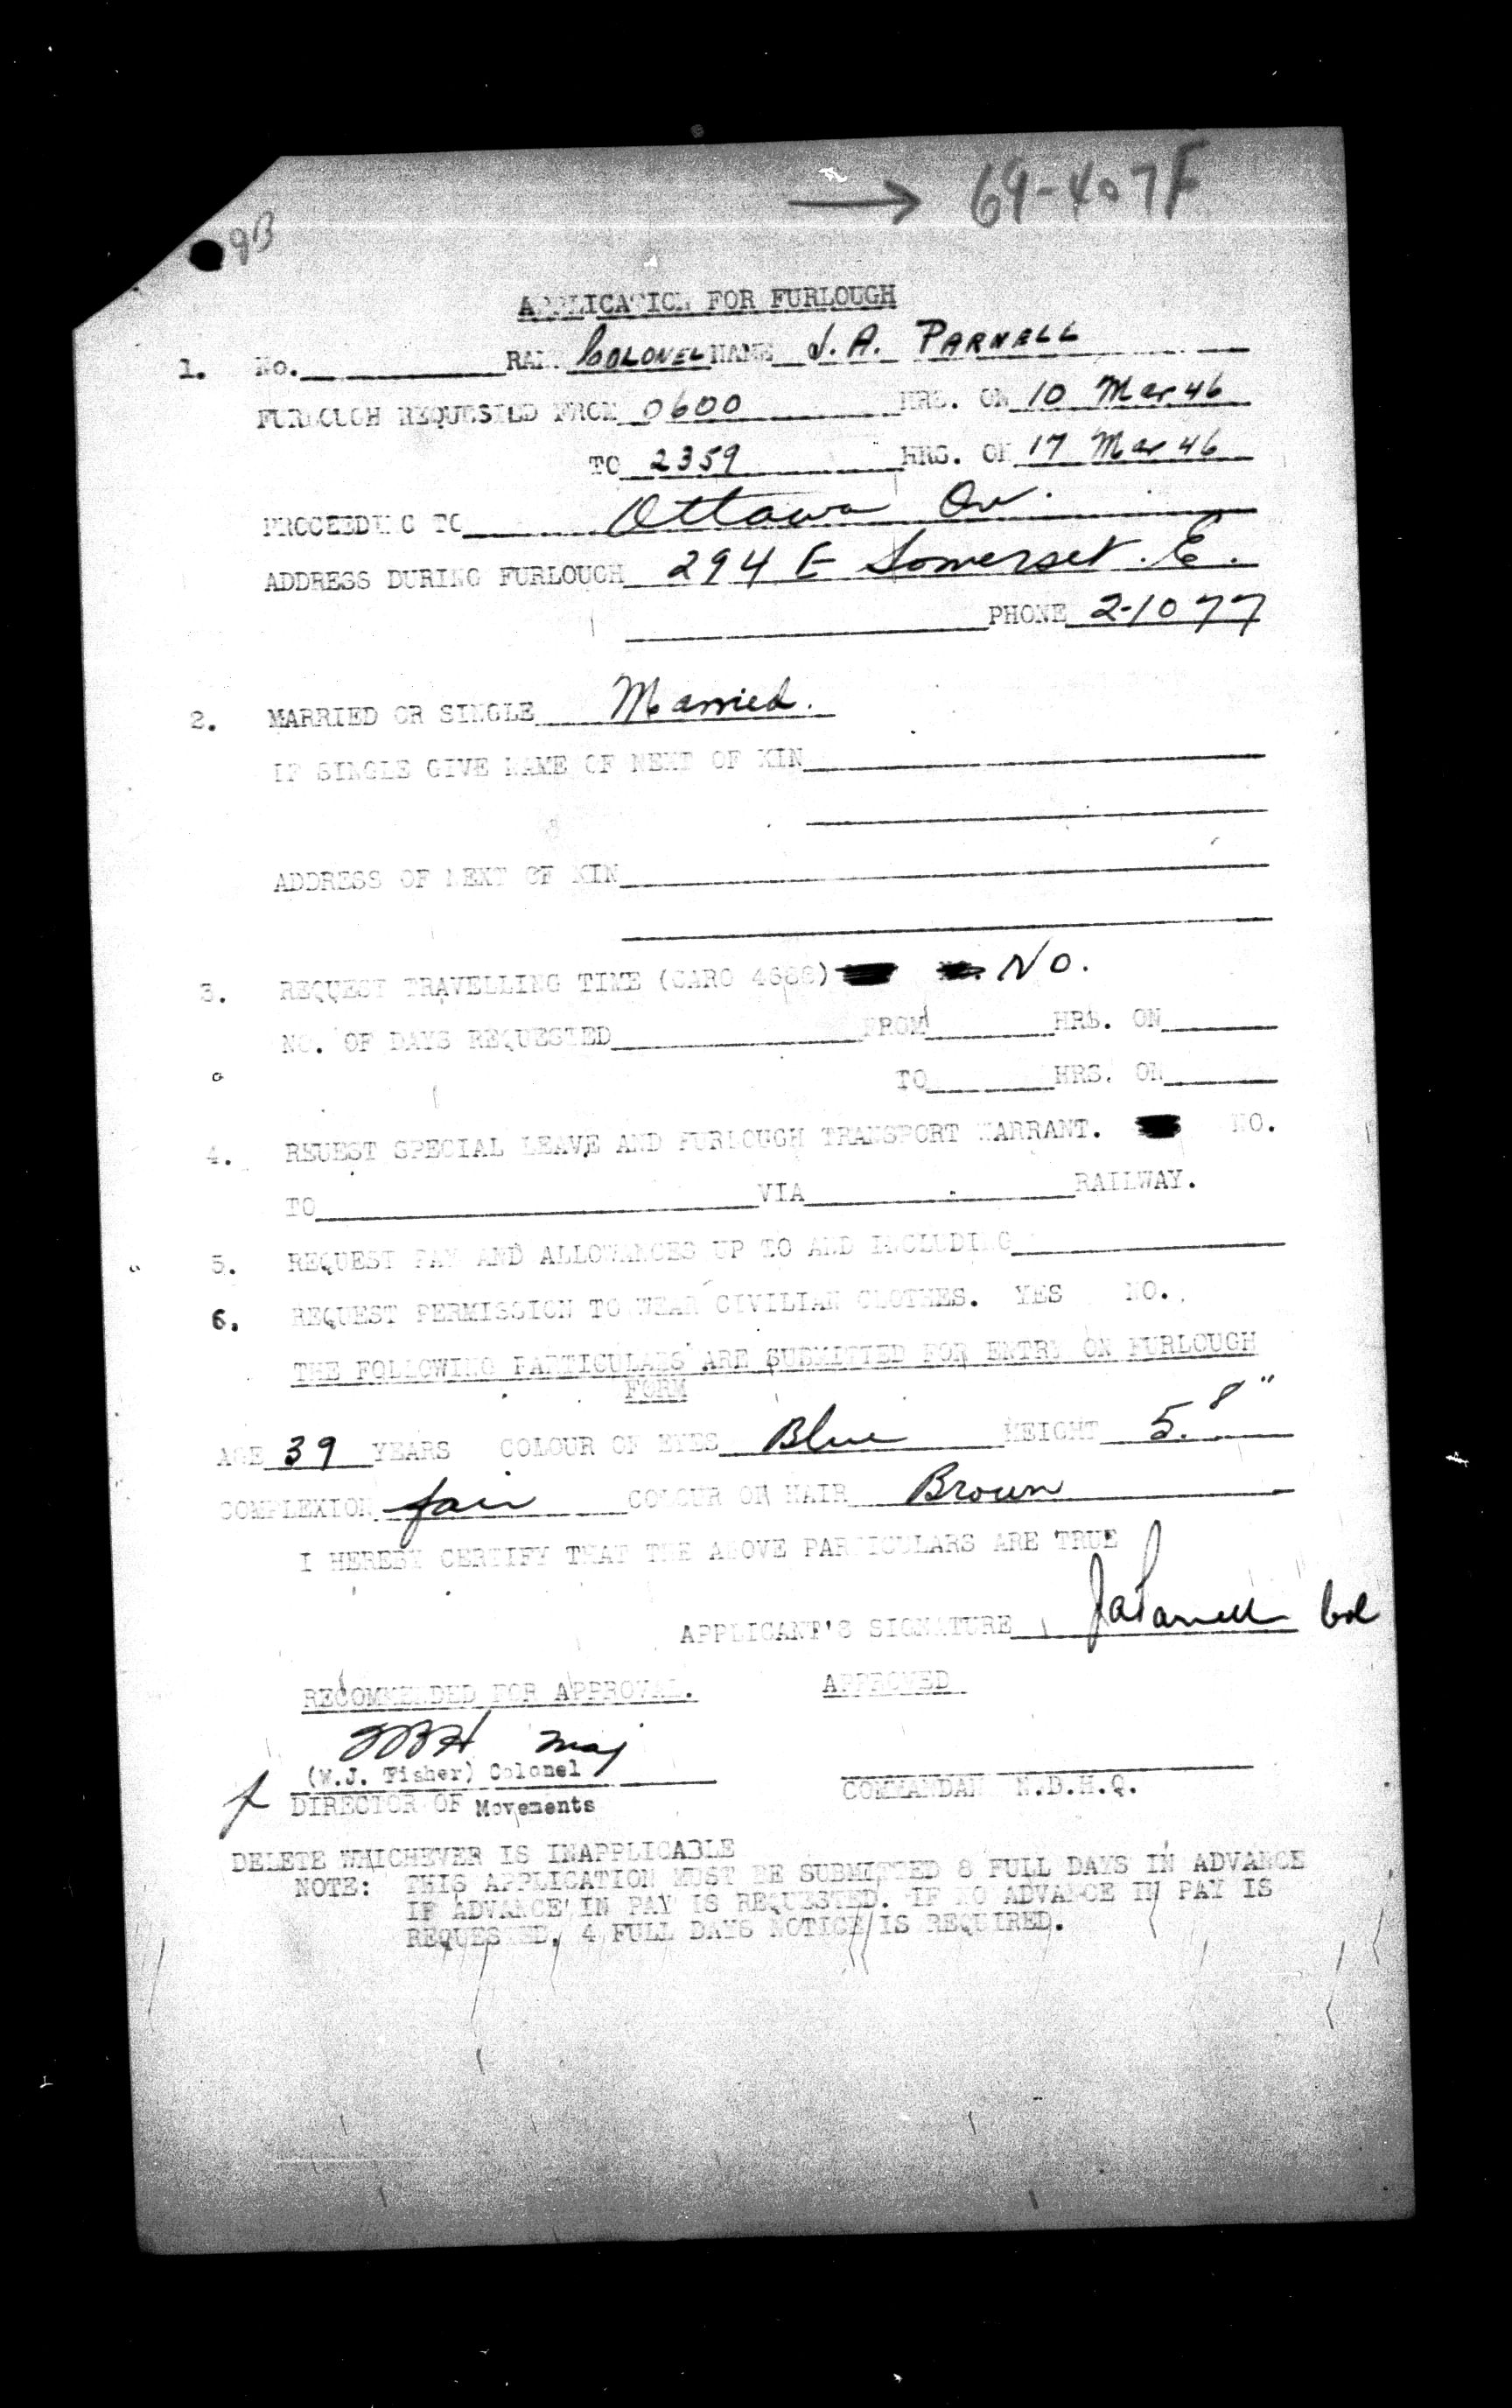 → 69-407F
APPLICATION FOR FURLOUGH
1. No. RANK COLONEL NAME J. A. PARNELL
FURLOUGH REQUESTED FROM 0600 HRS. ON 10 Mar 46
TO 2359 HRS. ON 17 Mar 46
PROCEEDING TO Ottawa On.
ADDRESS DURING FURLOUGH 294 E Somerset. E.
PHONE 2-1077
2. MARRIED OR SINGLE Married.
IF SINGLE GIVE NAME OF NEXT OF KIN
ADDRESS OF NEXT OF KIN
3. REQUEST TRAVELLING TIME (CARO 4688) No.
NO. OF DAYS REQUESTED FROM HRS. ON
TO HRS. ON
4. REUEST SPECIAL LEAVE AND FURLOUGH TRANSPORT WARRANT. NO.
TO VIA RAILWAY.
5. REQUEST PAY AND ALLOWANCES UP TO AND INCLUDING
6. REQUEST PERMISSION TO WEAR CIVILIAN CLOTHES. YES NO.
THE FOLLOWING PARTICULARS ARE SUBMITTED FOR ENTRY ON FURLOUGH
FORM
AGE 39 YEARS COLOUR OF EYES Blue HEIGHT 5.8"
COMPLEXION fair COLOUR ON HAIR Brown
I HEREBY CERTIFY THAT THE ABOVE PARTICULARS ARE TRUE
APPLICANT'S SIGNATURE JAParnell Col
RECOMMENDED FOR APPROVAL. APPROVED
Maj
(W.J. Fisher) Colonel
f DIRECTOR OF Movements COMMANDANT N.D.H.Q.
DELETE WHICHEVER IS INAPPLICABLE
NOTE: THIS APPLICATION MUST BE SUBMITTED 8 FULL DAYS IN ADVANCE
IF ADVANCE IN PAY IS REQUESTED. IF NO ADVANCE IN PAY IS
REQUESTED, 4 FULL DAYS NOTICE IS REQUIRED.